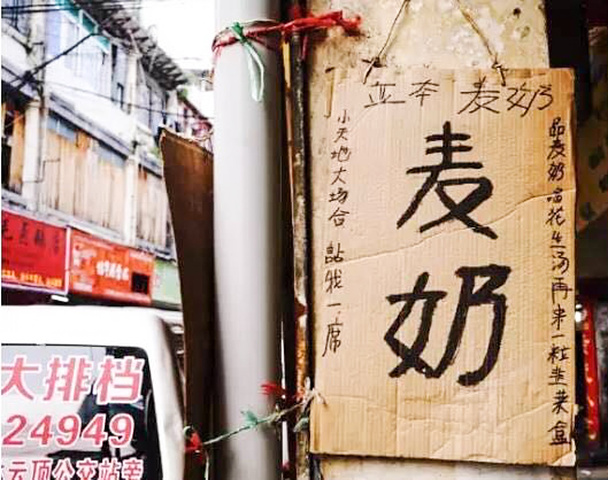 立本 麦奶
麦奶
品麦奶尝花生汤再来一粒韭菜盒
小天地大场合 説我一席
大排档
24949
云顶公交站旁